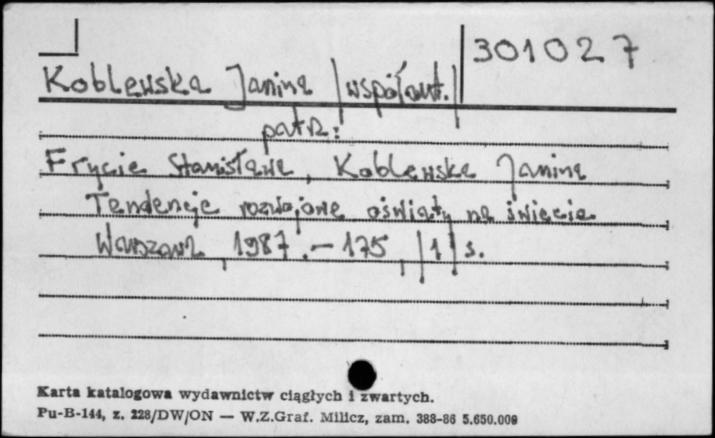 301027
Koblewska Janina /współaut./
patrz:
Frycie Stanisława, Koblewska Janina
Tendencje rozwojowe oświaty na świecie
Warszawa, 1987.- 175, /1/ s.
Karta katalogowa wydawnictw ciągłych i zwartych.
Pu-B-144, z. 228/DW/ON — W.Z.Graf. Milicz, zam. 388-86 5.650.000